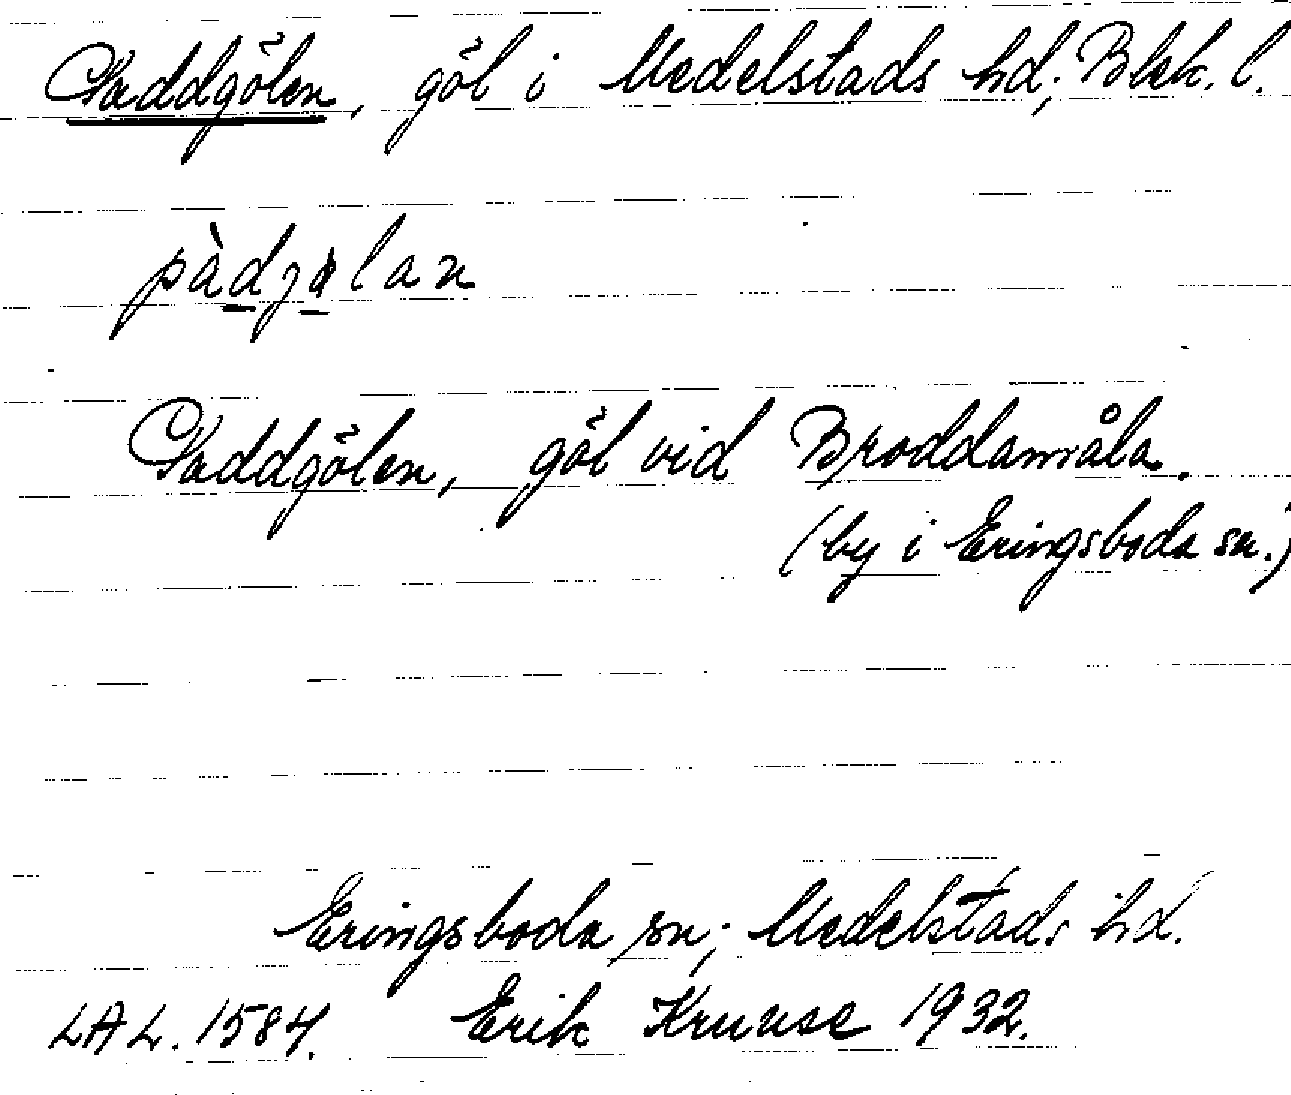 Paddgölen, göl i Medelstads hd; Blek. l.
pàdjalan
Paddgölen, göl vid Broddamåla.
(by i Eringsboda sn.)
Eringsboda sn; Medelstads hd.
LAL. 1584. Erik Kruuse 1932.